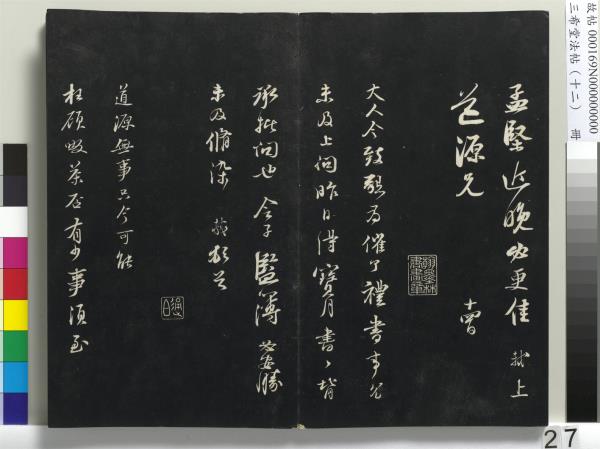 孟堅近晚必更佳 軾上
道源兄 十四日
大人令致懇為催了禮書事 冗
未及上問昨日得寶月書 書背
承批問也 令子監簿必安勝
未及脩染 軾頓首
道源無事只今可能
枉顧啜茶否有少事須至
故帖 000169N000000000
三希堂法帖(十二) 冊
27